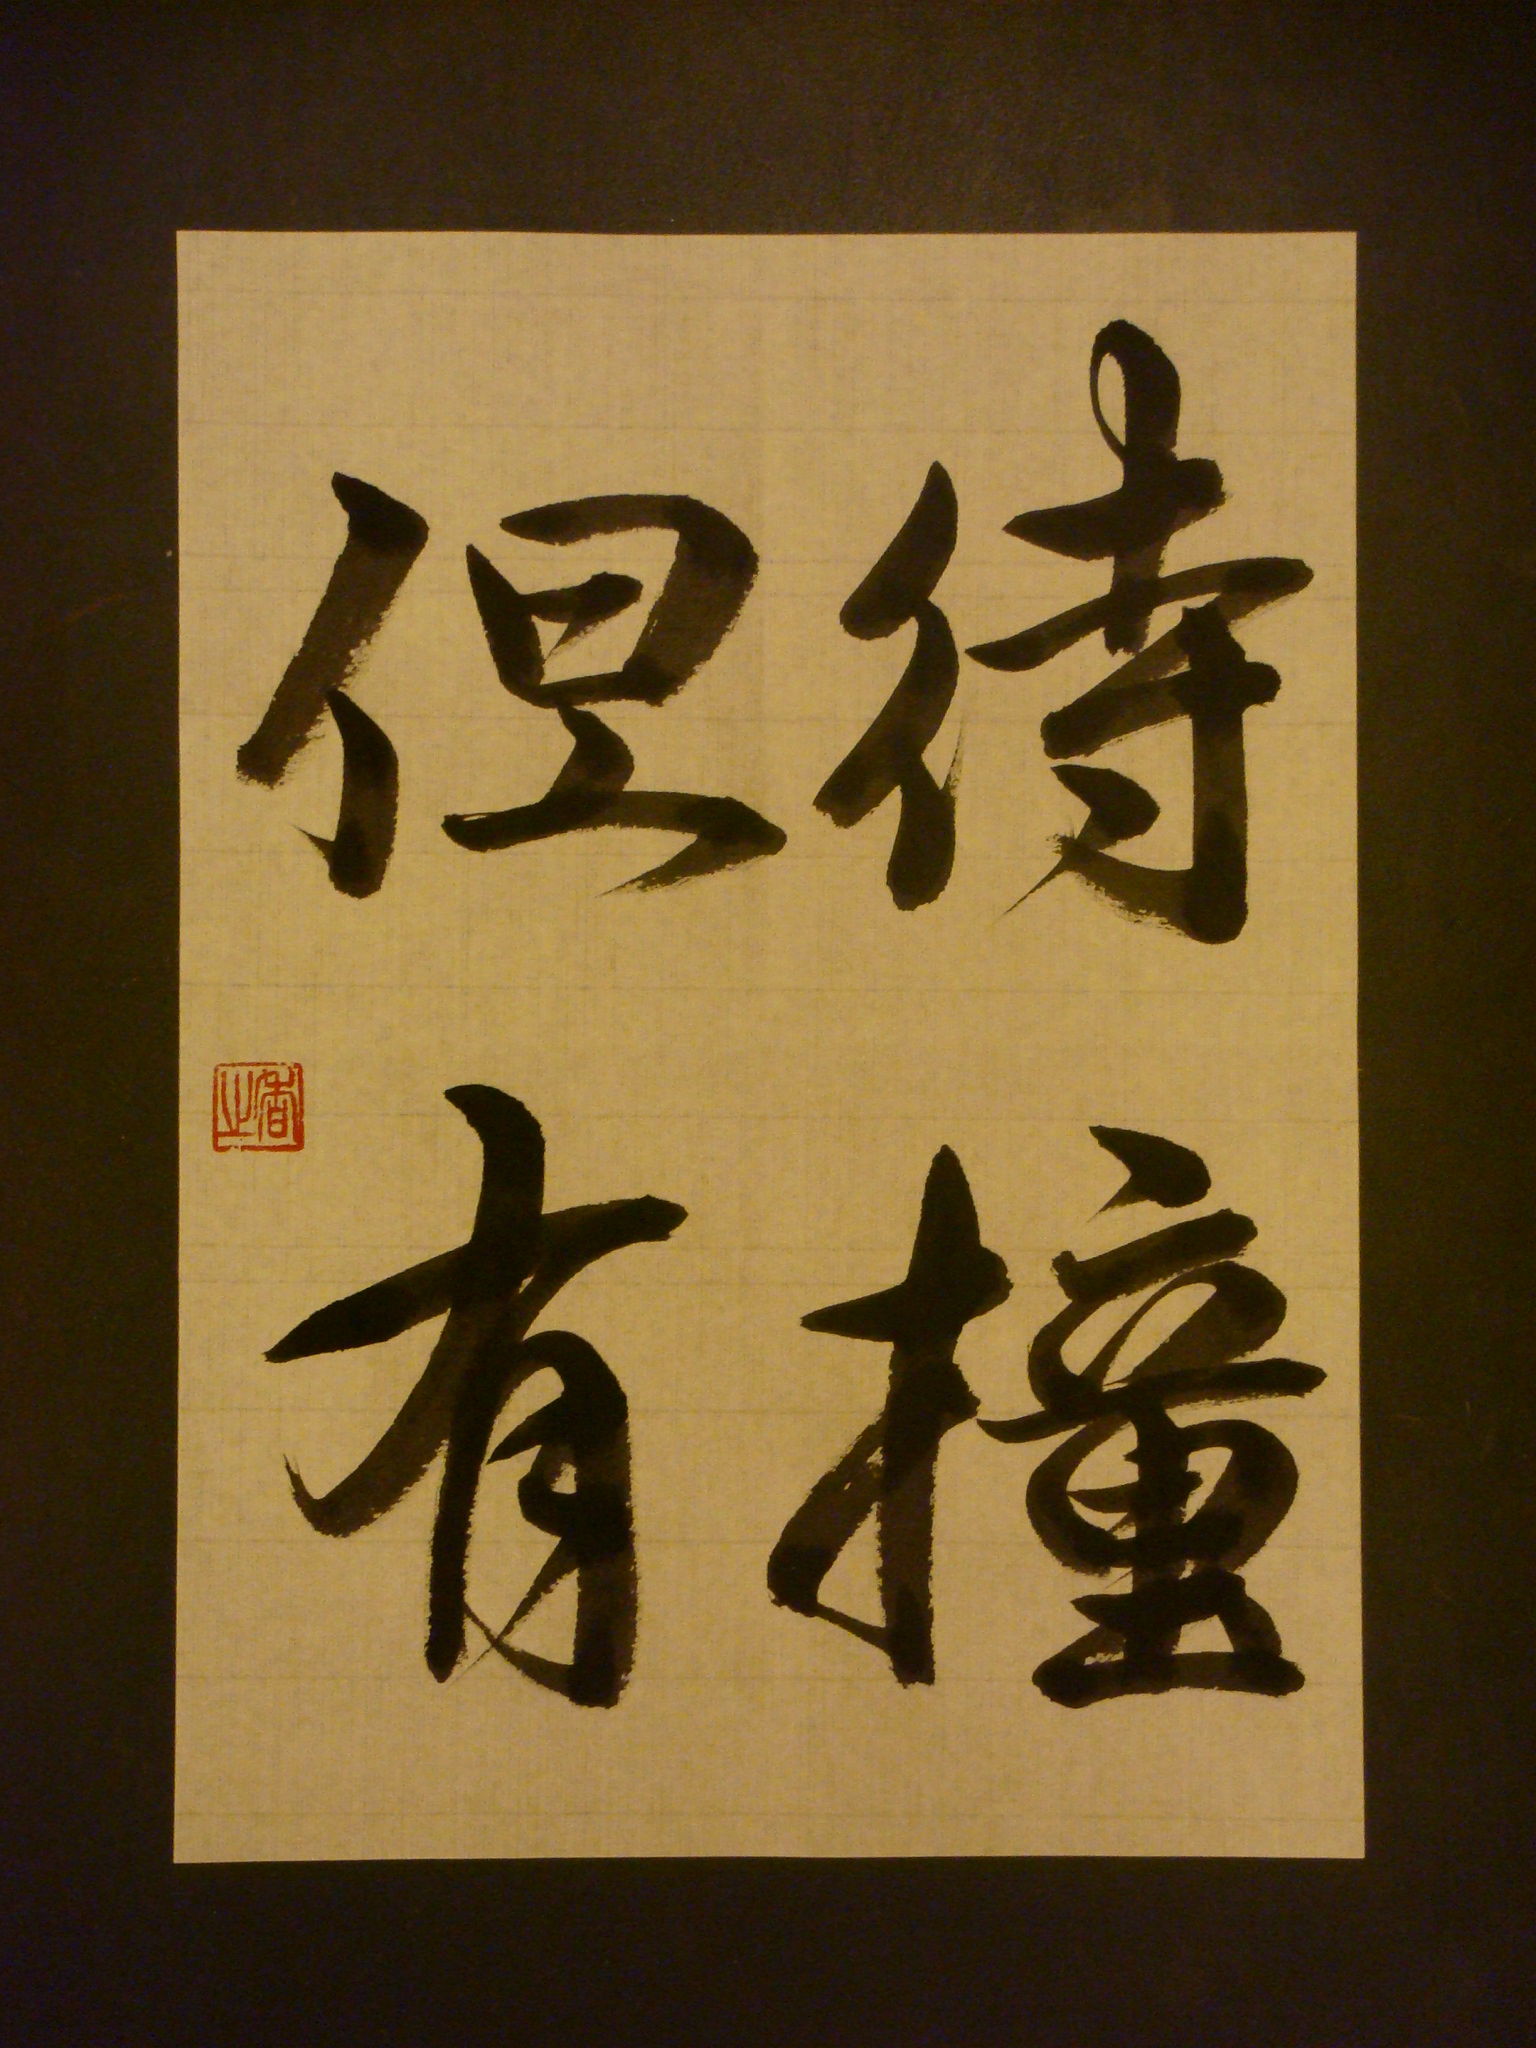 待撞
但有